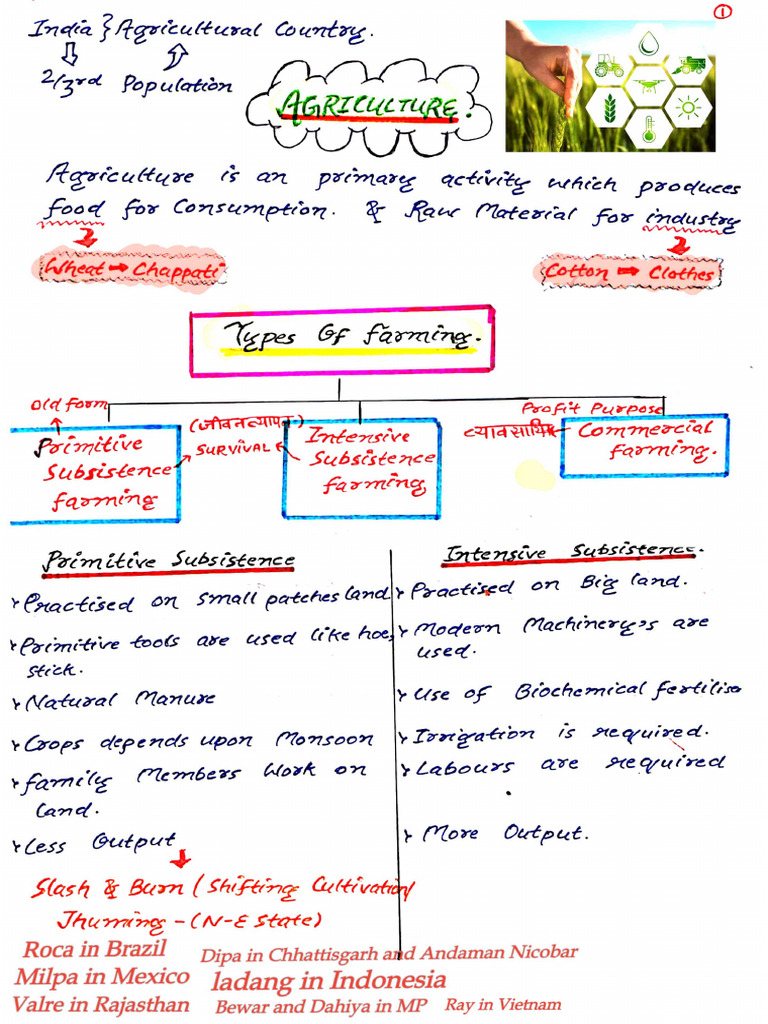 ①
India } Agricultural Country.
2/3rd Population
AGRICULTURE.
Agriculture is an primary activity which produces
food for Consumption. & Raw Material for industry
Wheat → Chappati
Cotton → Clothes
Types Of Farming.
Old form
(जीवनव्यापन)
SURVIVAL
Profit Purpose
व्यावसायिक
Primitive
Subsistence
farming
Intensive
Subsistence
farming
Commercial
farming.
Primitive Subsistence
Practised on small patches land
Primitive tools are used like hoe,
stick.
Natural Manure
Crops depends upon Monsoon
family Members Work on
Land.
Less Output
Slash & Burn (Shifting Cultivation)
Jhuming - (N-E State)
Roca in Brazil
Dipa in Chhattisgarh and Andaman Nicobar
Milpa in Mexico
ladang in Indonesia
Valre in Rajasthan
Bewar and Dahiya in MP
Ray in Vietnam
Intensive Subsistence.
Practised on Big land.
Modern Machinery's are
used.
Use of Biochemical fertilise
Irrigation is required.
Labours are required
More Output.